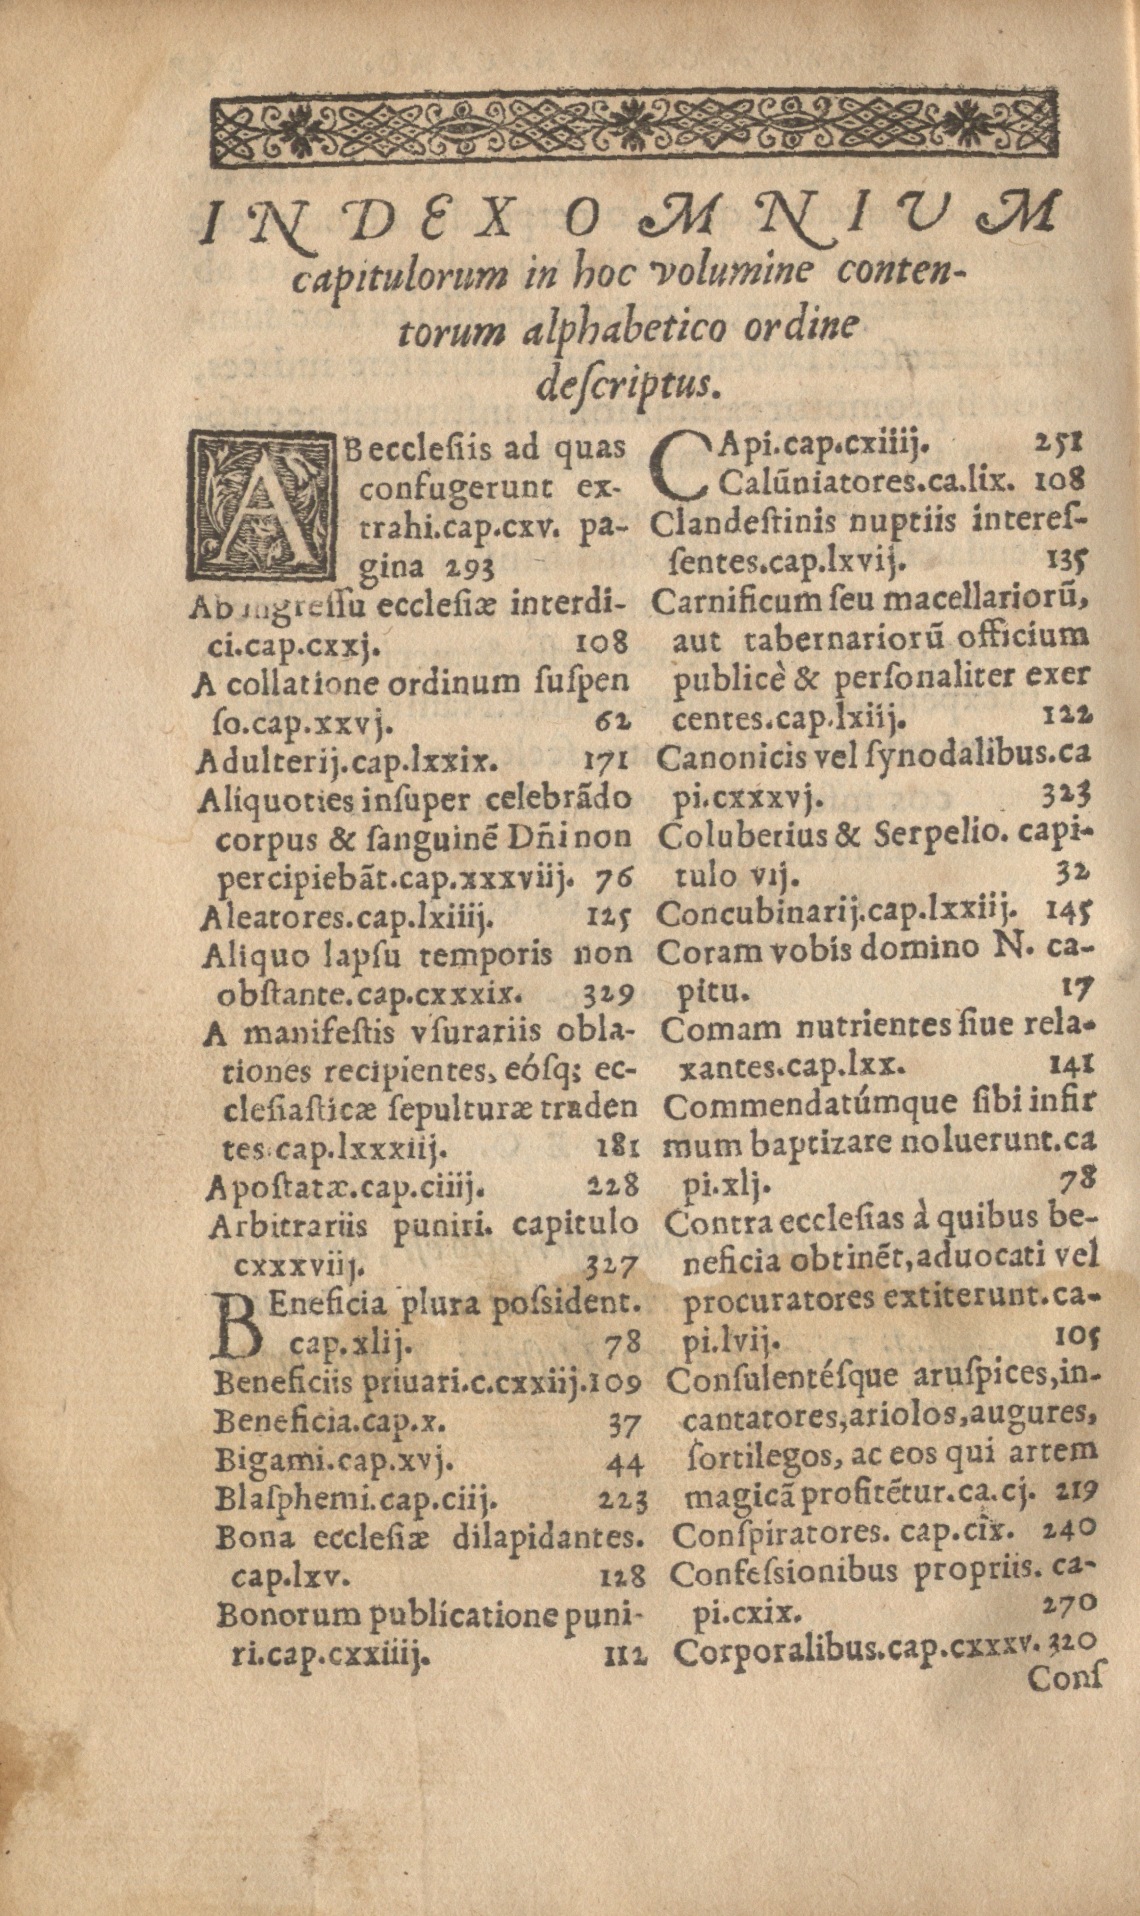 INDEX OMNIVM
capitulorum in hoc volumine conten-
torum alphabetico ordine
deſcriptus.
AB eccleſiis ad quas
confugerunt ex-
trahi.cap.cxv. pa-
gina 293
Ab ingreſſu eccleſiæ interdi-
ci.cap.cxxj. 108
A collatione ordinum ſuſpen
ſo.cap.xxvj. 62
Adulterij.cap.lxxix. 171
Aliquoties inſuper celebrãdo
corpus & ſanguinẽ Dñi non
percipiebãt.cap.xxxviij. 76
Aleatores.cap.lxiiij. 125
Aliquo lapſu temporis non
obſtante.cap.cxxxix. 329
A manifeſtis vſurariis obla-
tiones recipientes, eóſq; ec-
cleſiaſticæ ſepulturæ traden
tes.cap.lxxxiij. 181
Apoſtatæ.cap.ciiij. 228
Arbitrariis puniri. capitulo
cxxxviij. 327
BEneficia plura poſsident.
cap.xlij. 78
Beneficiis priuari.c.cxxiij.109
Beneficia.cap.x. 37
Bigami.cap.xvj. 44
Blaſphemi.cap.ciij. 223
Bona eccleſiæ dilapidantes.
cap.lxv. 128
Bonorum publicatione puni-
ri.cap.cxxiiij. 112
CApi.cap.cxiiij. 251
Calũniatores.ca.lix. 108
Clandeſtinis nuptiis intereſ-
ſentes.cap.lxvij. 135
Carnificum ſeu macellariorũ,
aut tabernariorũ officium
publicè & perſonaliter exer
centes.cap.lxiij. 122
Canonicis vel ſynodalibus.ca
pi.cxxxvj. 323
Coluberius & Serpelio. capi-
tulo vij. 32
Concubinarij.cap.lxxiij. 145
Coram vobis domino N. ca-
pitu. 17
Comam nutrientes ſiue rela-
xantes.cap.lxx. 141
Commendatúmque ſibi infir
mum baptizare noluerunt.ca
pi.xlj. 78
Contra eccleſias à quibus be-
neficia obtinẽt,aduocati vel
procuratores extiterunt.ca-
pi.lvij. 105
Conſulentéſque aruſpices,in-
cantatores,ariolos,augures,
ſortilegos, ac eos qui artem
magicã profitẽtur.ca.cj. 219
Conſpiratores. cap.cix. 240
Confeſsionibus propriis. ca-
pi.cxix. 270
Corporalibus.cap.cxxxv. 320
Conſ